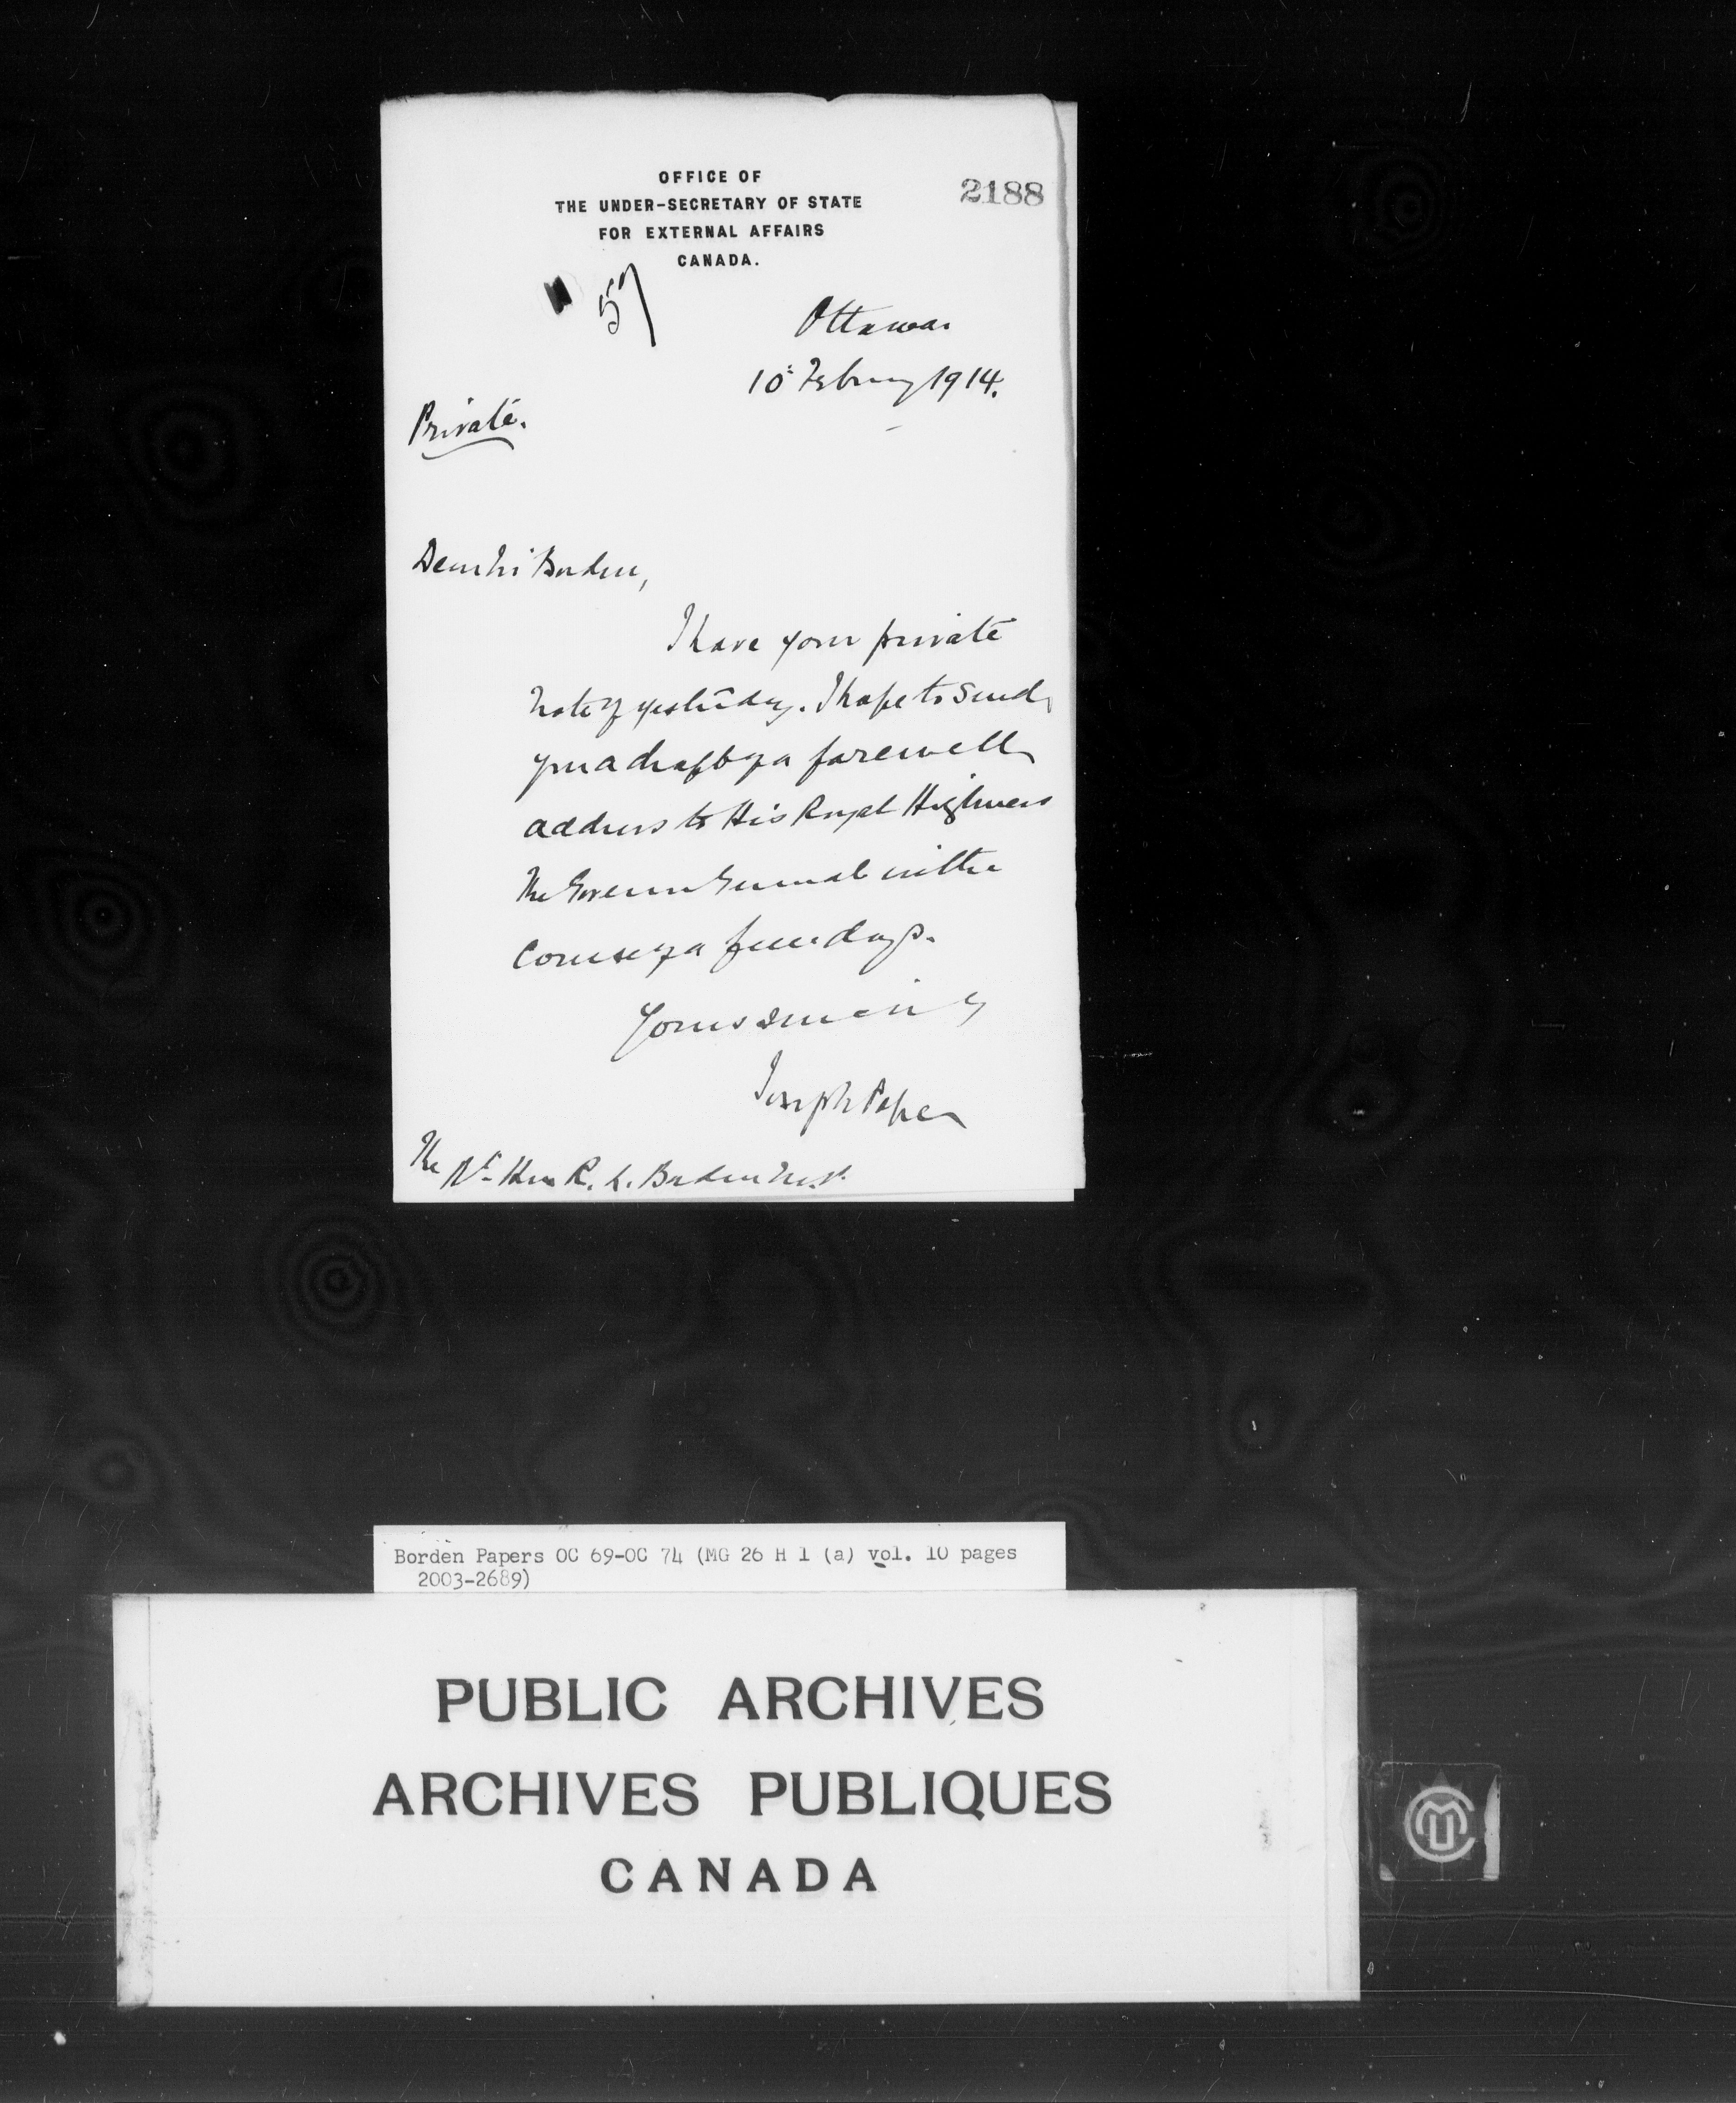 OFFICE OF
THE UNDER-SECRETARY OF STATE
FOR EXTERNAL AFFAIRS
CANADA.
2188
57
Ottawa
10: February 1914.
Private.
Dear Mr Borden,
I have your private
note of yesterday. I hope to send
you a draft of a farewell
address to His Royal Highness
The Governor General in the
course of a few days.
Yours sincerely
Joseph Pope
The Rt Hon R. L. Borden M.P.
Borden Papers OC 69-OC 74 (MG 26 H 1 (a) vol. 10 pages
2003-2689)
PUBLIC ARCHIVES
ARCHIVES PUBLIQUES
CANADA